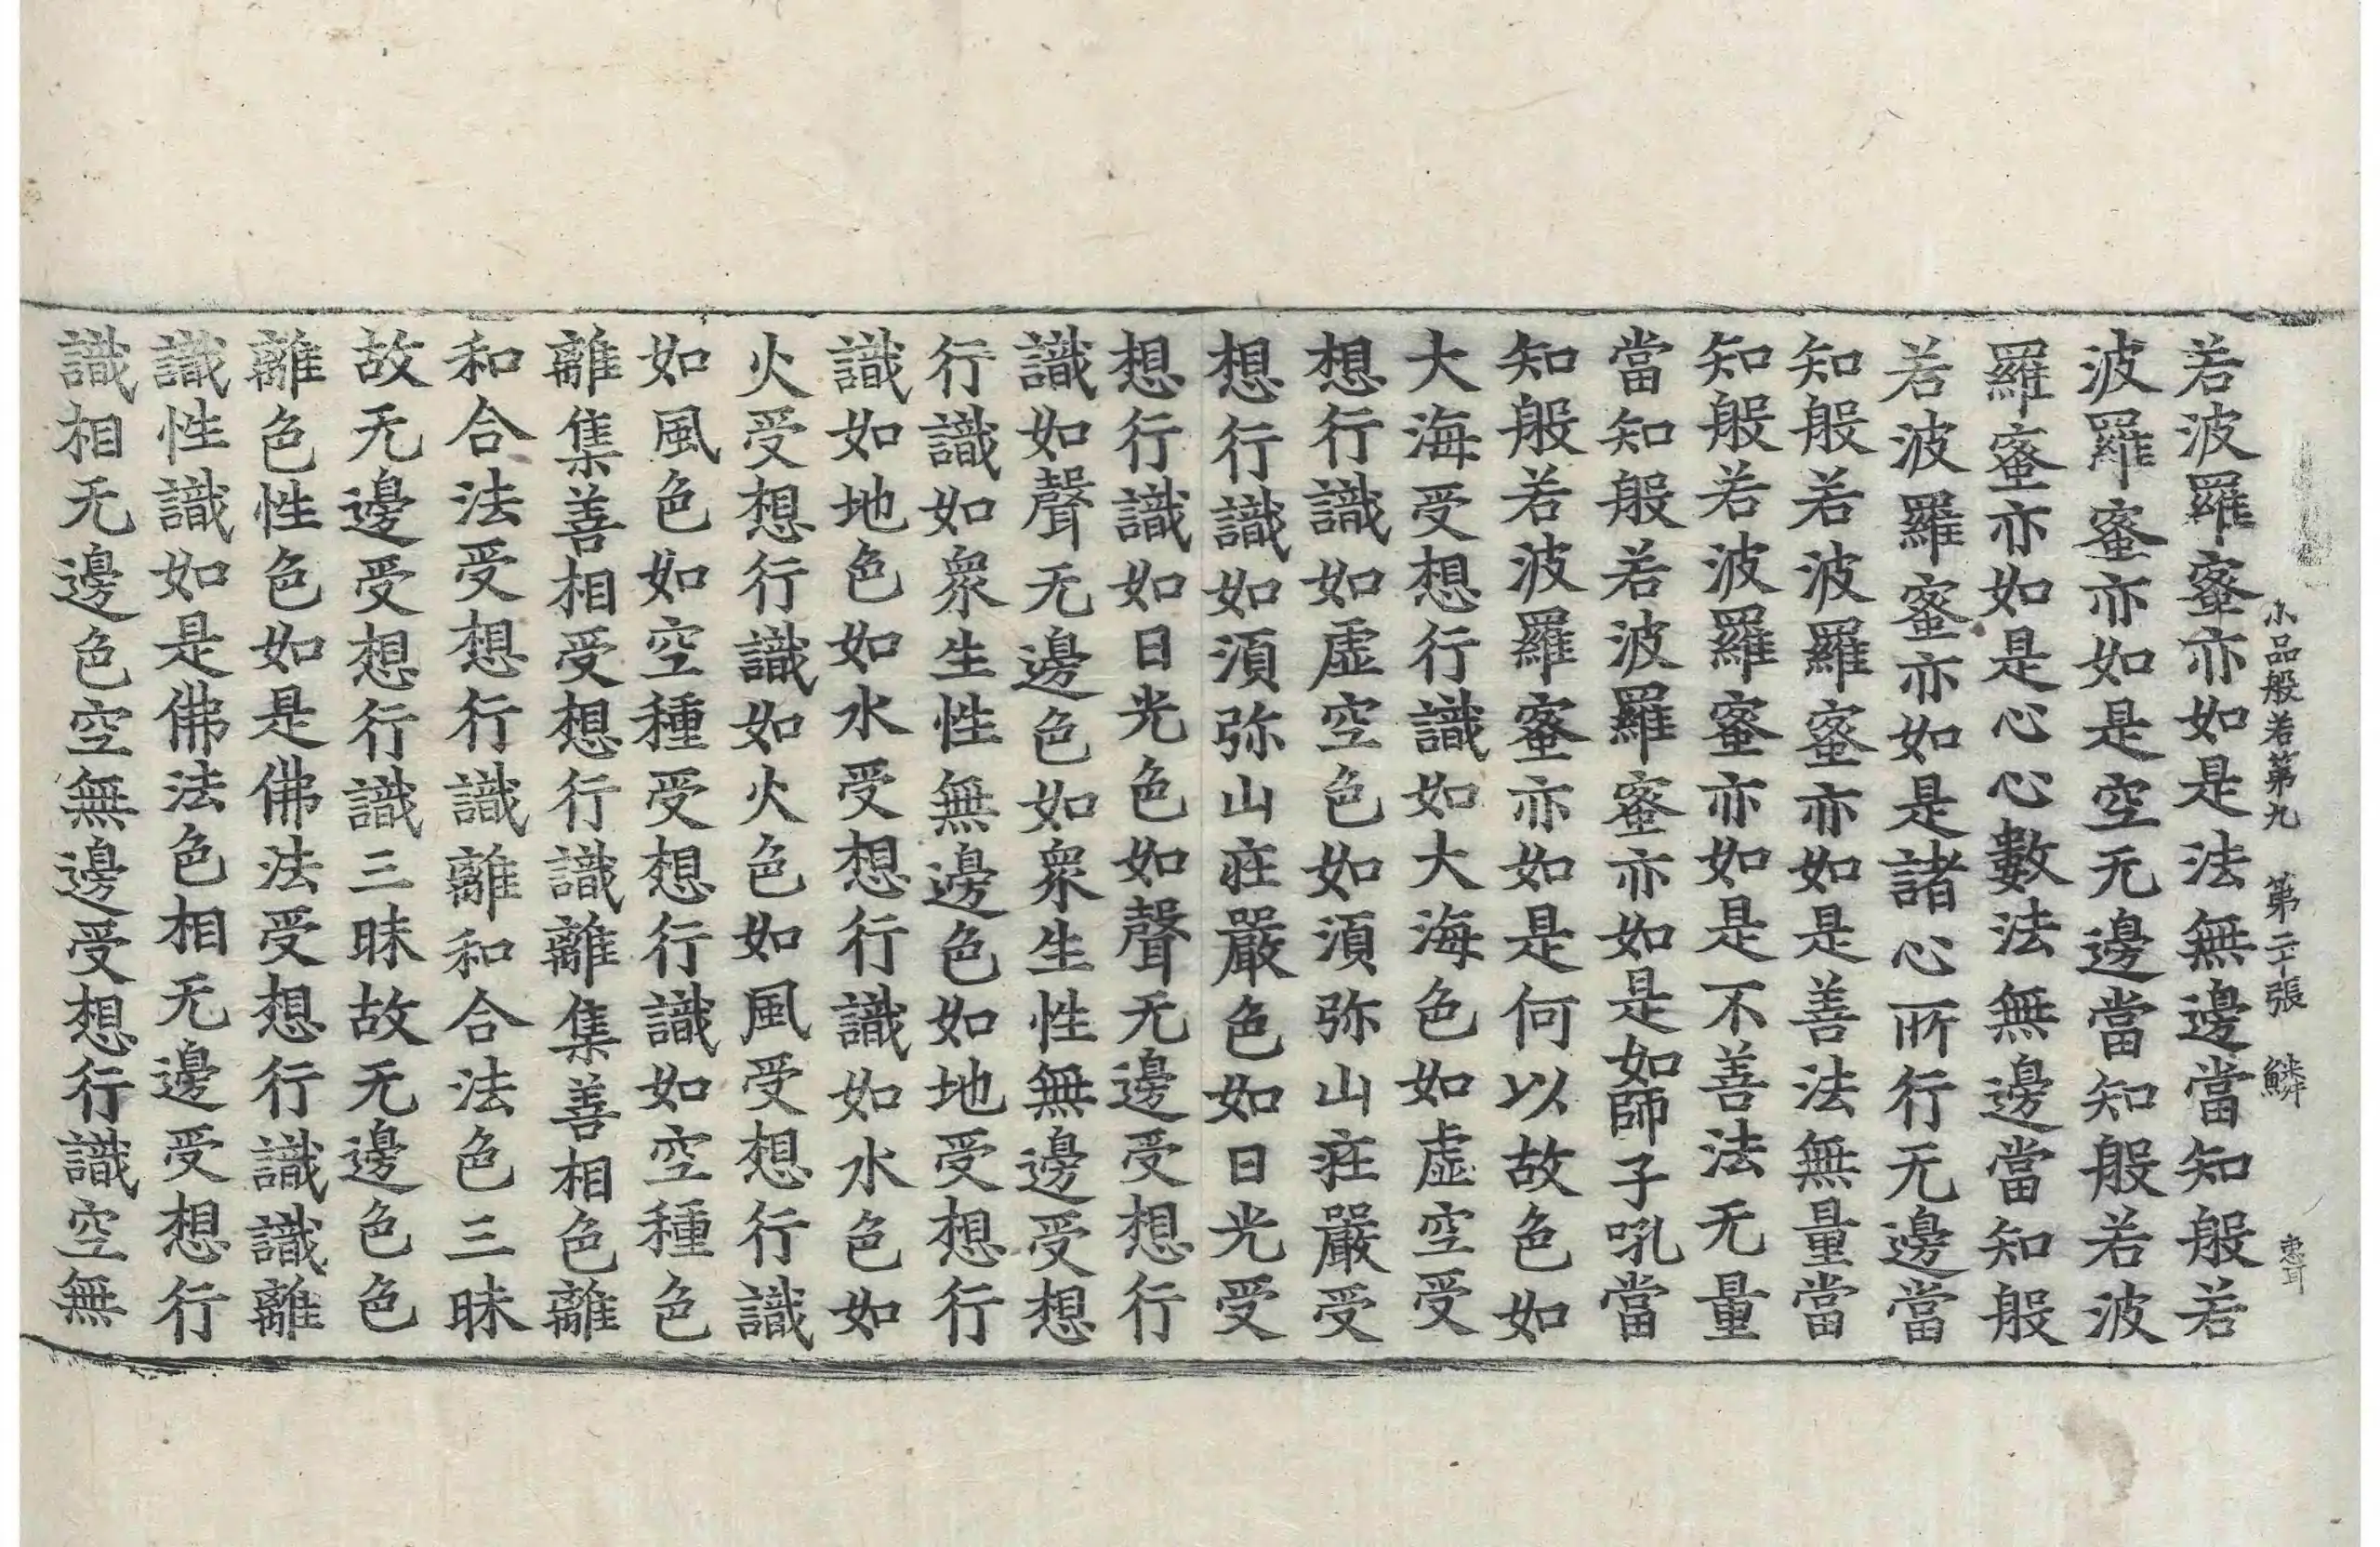 小品般若第九 第二十張 鱗
若波羅蜜亦如是法無邊當知般若
波羅蜜亦如是空无邊當知般若波
羅蜜亦如是心心數法無邊當知般
若波羅蜜亦如是諸心所行无邊當
知般若波羅蜜亦如是善法無量當
知般若波羅蜜亦如是不善法无量
當知般若波羅蜜亦如是如師子吼當
知般若波羅蜜亦如是何以故色如
大海受想行識如大海色如虛空受
想行識如虛空色如湏弥山莊嚴受
想行識如湏弥山莊嚴色如日光受
想行識如日光色如聲无邊受想行
識如聲无邊色如衆生性無邊受想
行識如衆生性無邊色如地受想行
識如地色如水受想行識如水色如
火受想行識如火色如風受想行識
如風色如空種受想行識如空種色
離集善相受想行識離集善相色離
和合法受想行識離和合法色三昧
故无邊受想行識三昧故无邊色色
離色性色如是佛法受想行識識離
識性識如是佛法色相无邊受想行
識相无邊色空無邊受想行識空無